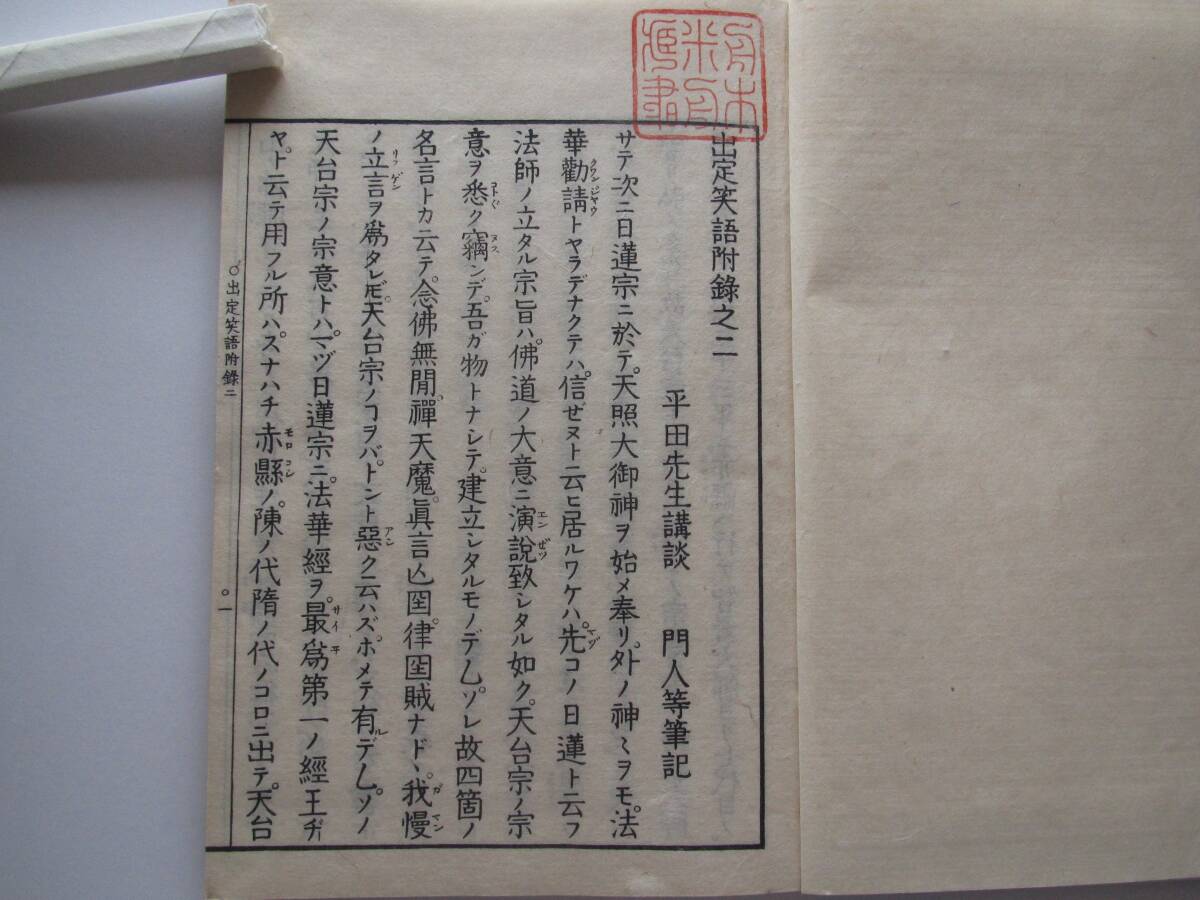 出定笑語附録之二
平田先生講談　門人等筆記
サテ次ニ日蓮宗ニ於テ。天照大御神ヲ始メ奉リ。外ノ神〻ヲモ。法
華勸請トヤラデナクテハ。信ゼヌト云ヒ居ルワケハ。先コノ日蓮ト云フ
法師ノ立タル宗旨ハ。佛道ノ大意ニ演說致シタル如ク。天台宗ノ宗
意ヲ悉ク竊ンデ。吾ガ物トナシテ。建立シタルモノデ乚。ソレ故四箇ノ
名言トカ云テ。念佛無間。禪天魔。眞言亡国。律国賊ナド、。我慢
ノ立言ヲ爲タレ𪜈。天台宗ノヿヲバ。トント惡ク云ハズ。ホメテ有ルデ乚。ソノ
天台宗ノ宗意トハ。マヅ日蓮宗ニ。法華經ヲ。最爲第一ノ經王ヂ
ヤ。ト云テ用フル所ハ。スナハチ赤縣ノ。陳ノ代隋ノ代ノコロニ出テ。天台
出定笑語附録ニ
一